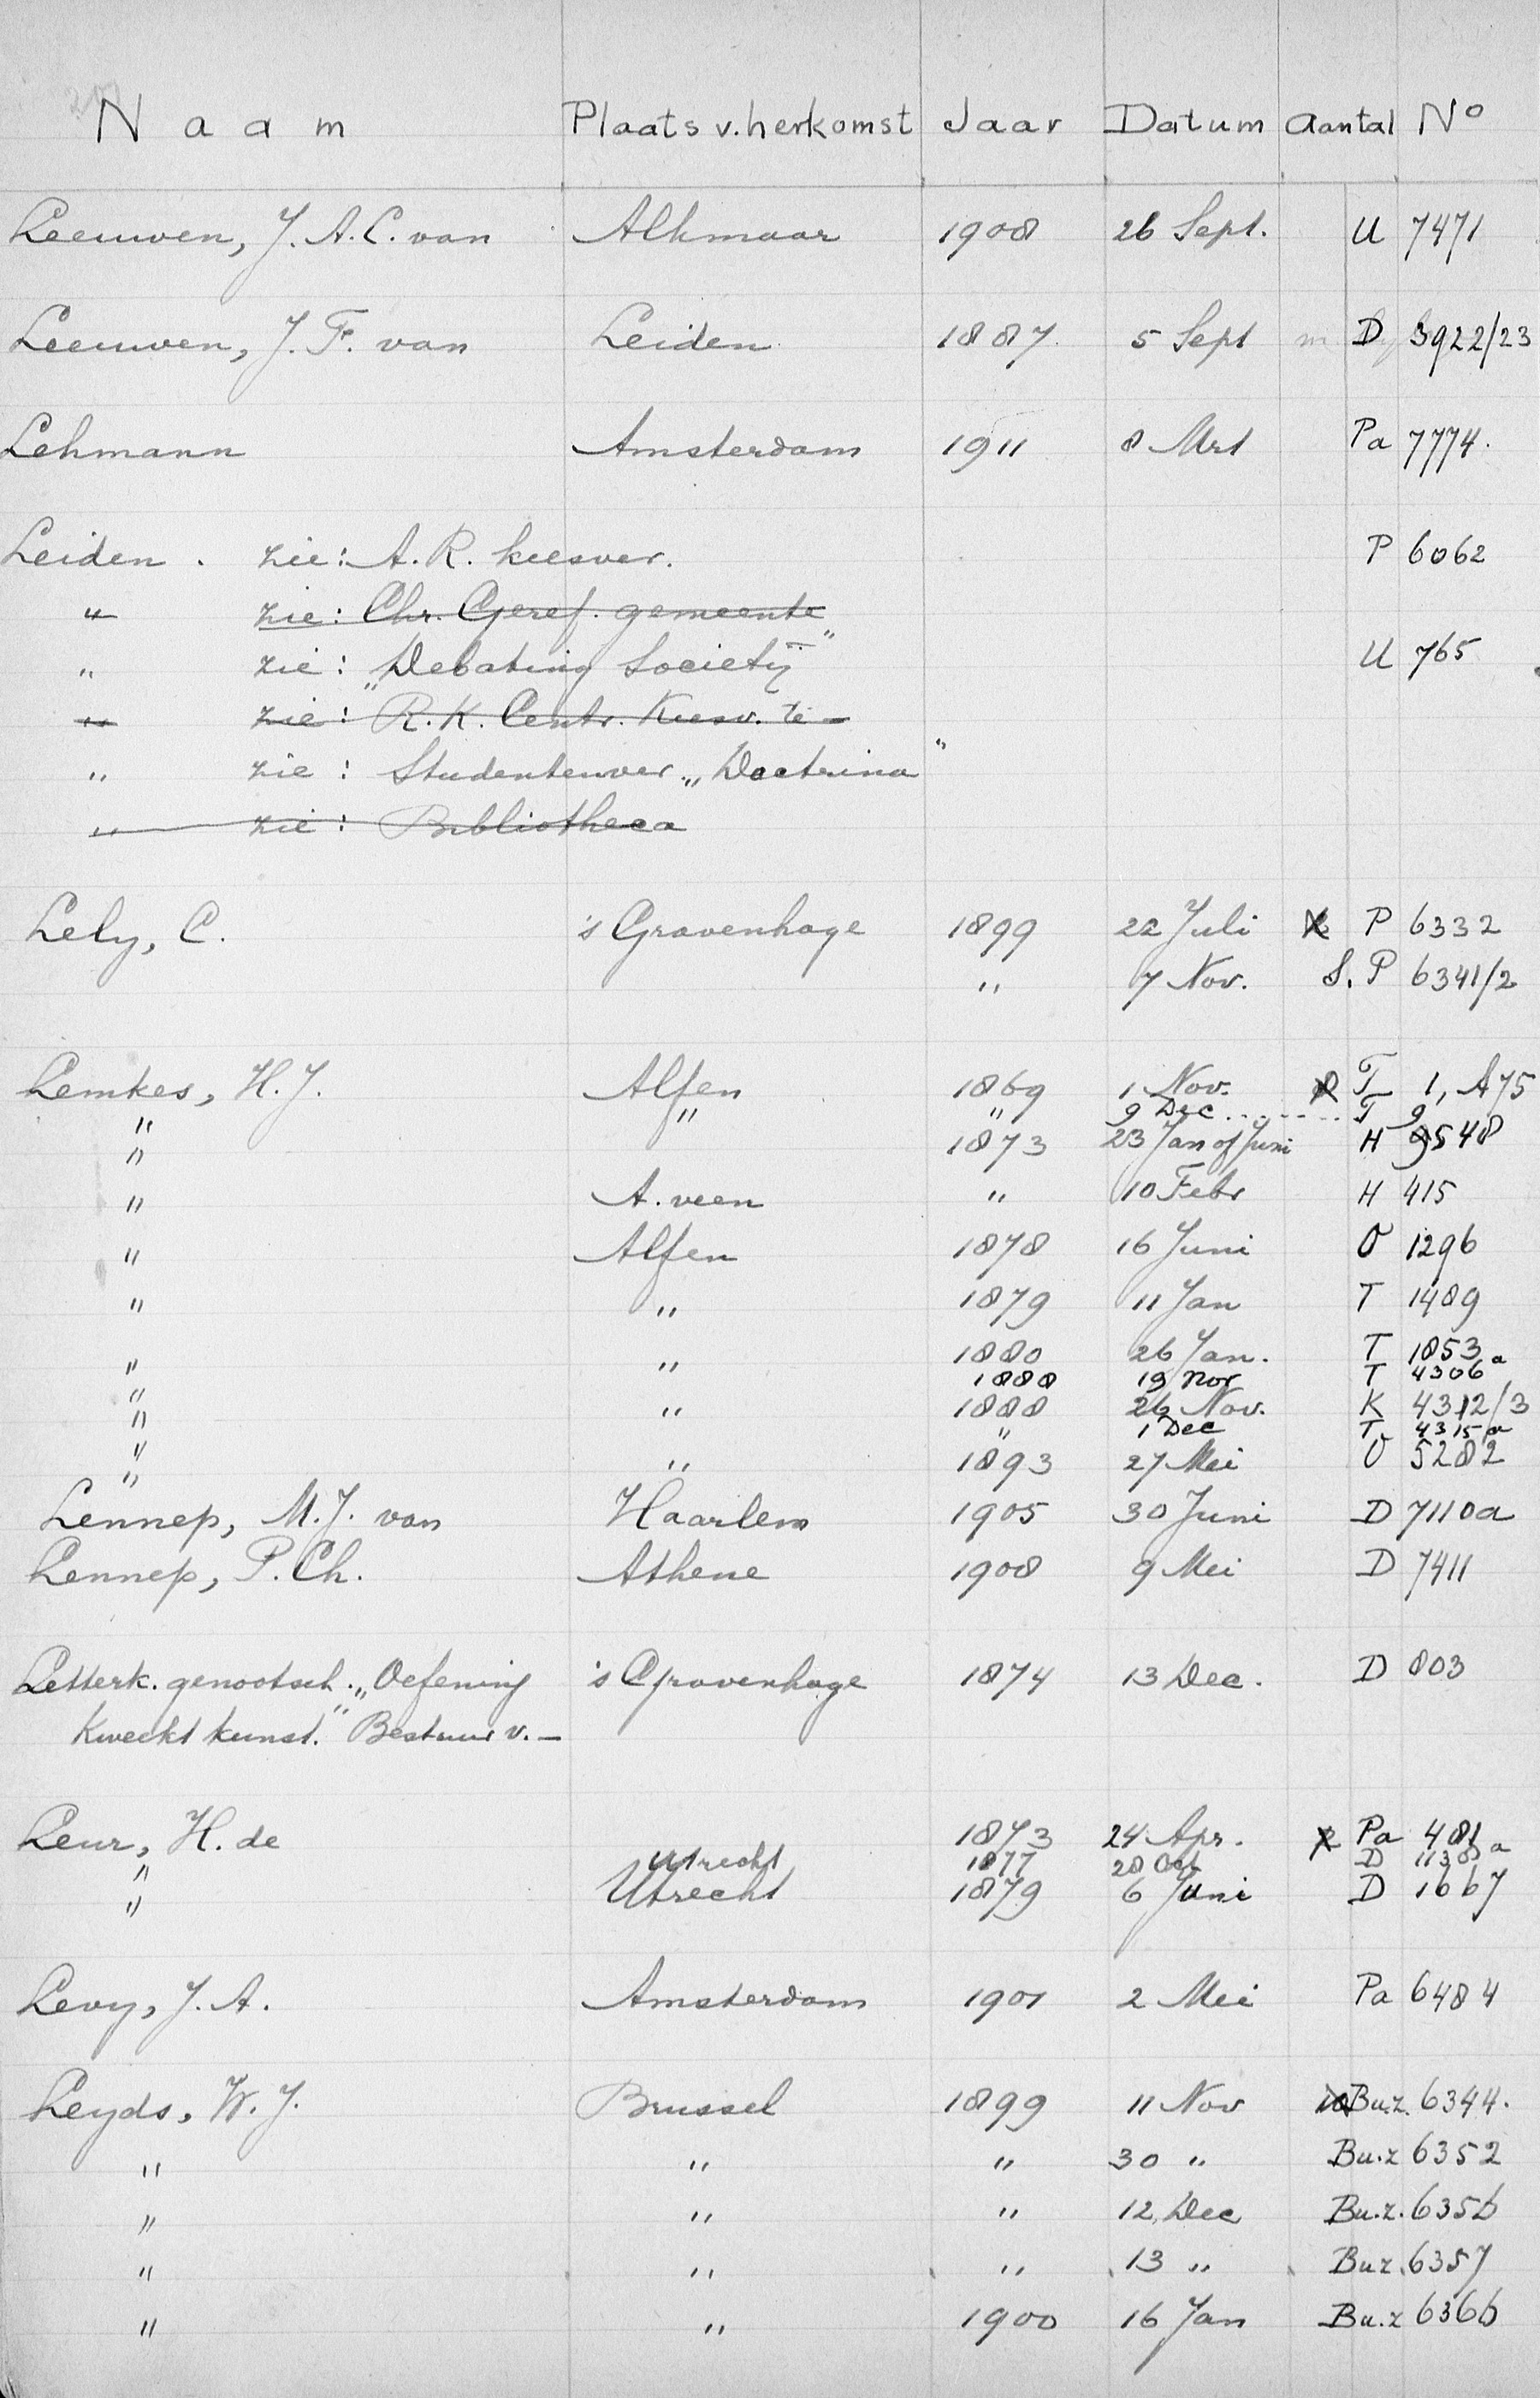 Naam Plaats v. herkomst Jaar Datum Aantal No
Leeuwen, J. A. C. van Alkmaar 1908 26 Sept. U 7471
Leeuwen, J. F. van Leiden 1887 5 Sept D 3922/23
Lehmann Amsterdam 1911 8 Mrt Pa 7774.
Leiden . zie: A. R. kiesver. P 6062
" zie: Chr. Geref. gemeente
" zie: "Debating Society" U 765
" zie: R. K. Centr. Kiesv. te -
" zie: Studentenver. „Doctrina"
" zie: Bibliotheca
Lely, C. 's Gravenhage 1899 22 Juli P 6332
" 7 Nov. S. P 6341/2
Lemkes, H. J. Alfen 1869 1 Nov. T 1, A75
" " " 9 Dec ....... T 9
" 1873 23 Jan of Juni H 9548
" A. veen " 10 Febr H 415
" Alfen 1878 16 Juni O 1296
" " 1879 11 Jan T 1489
" " 1880 26 Jan. T 1853
" 1888 19 Nov T 4306a
" " 1888 26 Nov. K 4312/3
" " 1 Dec T. 4315a
" " 1893 27 Mei O 5282
Lennep, M. J. van Haarlem 1905 30 Juni D 7110a
Lennep, P. Ch. Athene 1908 9 Mei D 7411
Letterk. genootsch. „Oefening 's Gravenhage 1874 13 Dec. D 803
Kweekt kunst." Bestuur v. -
Leur, H. de 1873 24 Apr. Pa 481
" Utrecht 1877 28 Oct D 1138a
" Utrecht 1879 6 Juni D 1667
Levy, J. A. Amsterdam 1901 2 Mei Pa 6484
Leyds, W. J. Brussel 1899 11 Nov Bu.z. 6344.
" " " 30 " Bu.z 6352
" " " 12 Dec Bu.z. 6356
" " " 13 " Bu z. 6357
" " 1900 16 Jan Bu.z 6366